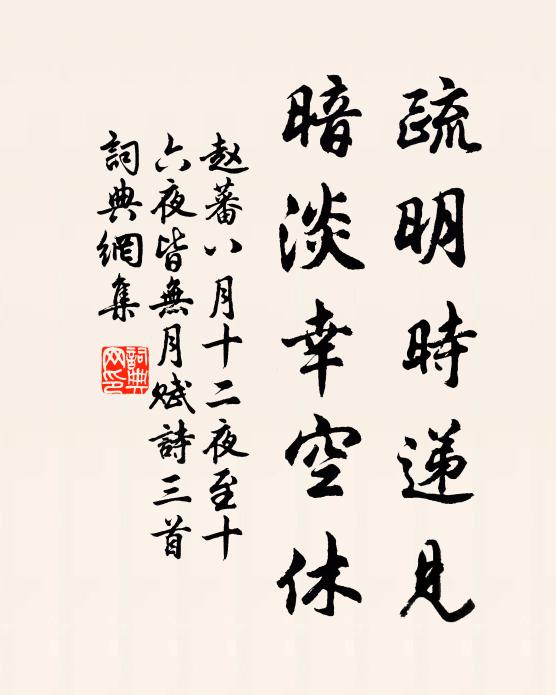 疏明時递見
暗淡幸空休
赵蕃八月十二夜至十
六夜皆無月赋詩三首
詞典網集
詞典
网印